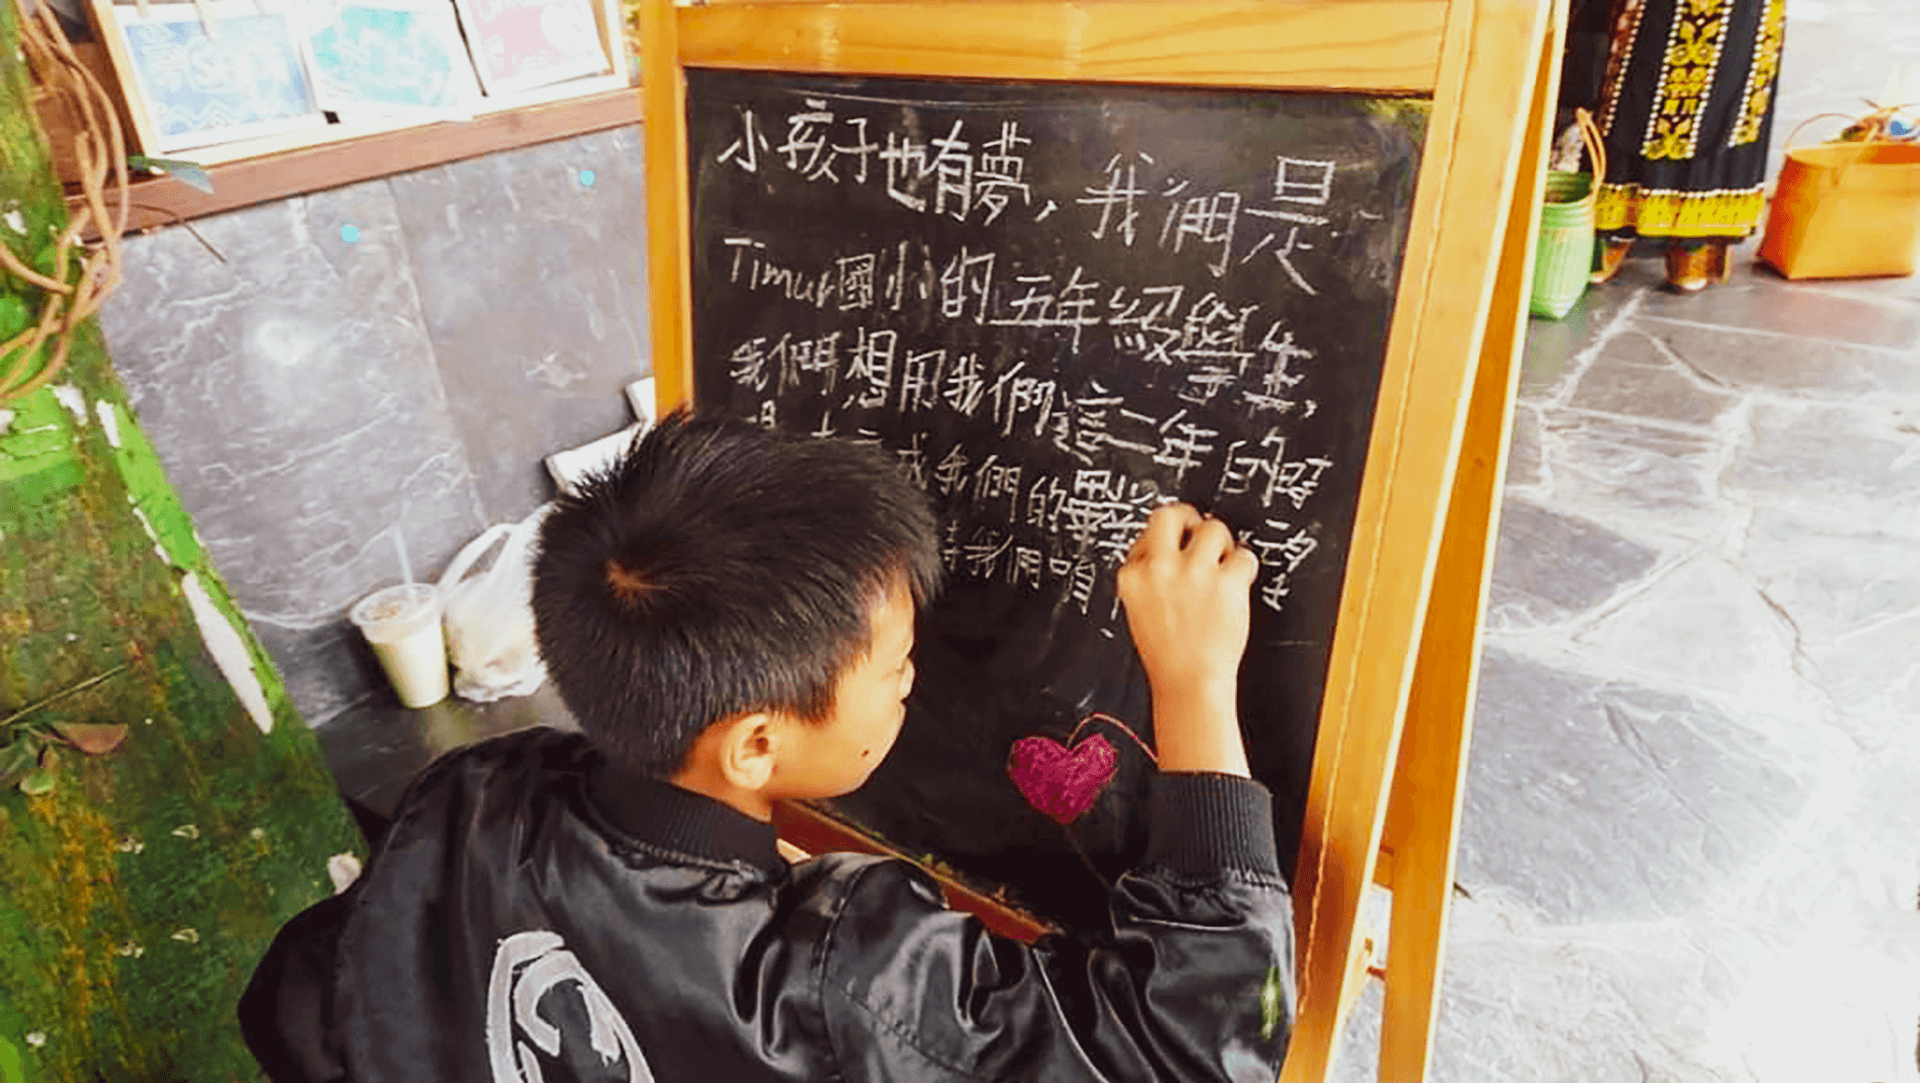 小孩子也有夢,我們是
Timur國小的五年級學生,
我們想用我們這二年的時
成我們的畢
我們唷